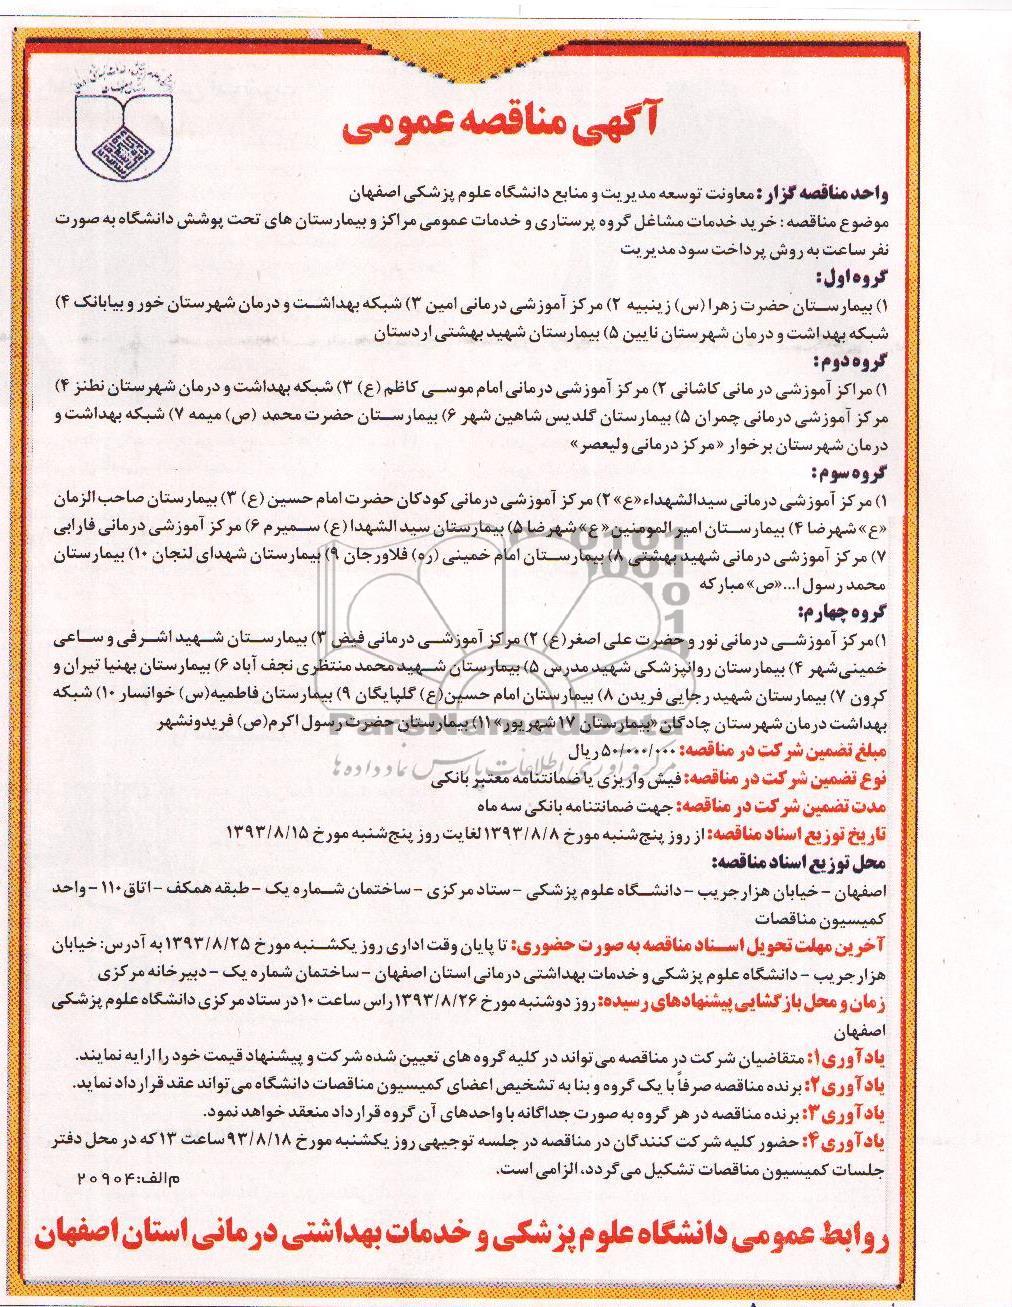 آگهی مناقصه عمومی
واحد مناقصه گزار: معاونت توسعه مدیریت و منابع دانشگاه علوم پزشکی اصفهان
موضوع مناقصه: خرید خدمات مشاغل گروه پرستاری و خدمات عمومی مراکز و بیمارستان های تحت پوشش دانشگاه به صورت
نفر ساعت به روش پرداخت سود مدیریت
گروه اول:
۱) بیمارستان حضرت زهرا (س) زینبیه ۲) مرکز آموزشی درمانی امین ۳) شبکه بهداشت و درمان شهرستان خور و بیابانک ۴)
شبکه بهداشت و درمان شهرستان نایین ۵) بیمارستان شهید بهشتی اردستان
گروه دوم:
۱) مراکز آموزشی درمانی کاشانی ۲) مرکز آموزشی درمانی امام موسی کاظم (ع) ۳) شبکه بهداشت و درمان شهرستان نطنز ۴)
مرکز آموزشی درمانی چمران ۵) بیمارستان گلدیس شاهین شهر ۶) بیمارستان حضرت محمد (ص) میمه ۷) شبکه بهداشت و
درمان شهرستان برخوار «مرکز درمانی ولیعصر»
گروه سوم:
۱) مرکز آموزشی درمانی سیدالشهداء«ع» ۲) مرکز آموزشی درمانی کودکان حضرت امام حسین (ع) ۳) بیمارستان صاحب الزمان
«ع» شهرضا ۴) بیمارستان امیر المومنین «ع» شهرضا ۵) بیمارستان سید الشهدا (ع) سمیرم ۶) مرکز آموزشی درمانی فارابی
۷) مرکز آموزشی درمانی شهید بهشتی ۸) بیمارستان امام خمینی (ره) فلاورجان ۹) بیمارستان شهدای لنجان ۱۰) بیمارستان
محمد رسول ا...«ص» مبارکه
گروه چهارم:
۱)مرکز آموزشی درمانی نور و حضرت علی اصغر(ع) ۲) مرکز آموزشی درمانی فیض ۳) بیمارستان شهید اشرفی و ساعی
خمینی‌شهر ۴) بیمارستان روانپزشکی شهید مدرس ۵) بیمارستان شهید محمد منتظری نجف آباد ۶) بیمارستان بهنیا تیران و
کرون ۷) بیمارستان شهید رجایی فریدن ۸) بیمارستان امام حسین(ع) گلپایگان ۹) بیمارستان فاطمیه(س) خوانسار ۱۰) شبکه
بهداشت درمان شهرستان چادگان «بیمارستان ۱۷ شهریور» ۱۱) بیمارستان حضرت رسول اکرم(ص) فریدونشهر
مبلغ تضمین شرکت در مناقصه: ۵۰/۰۰۰/۰۰۰ ریال
نوع تضمین شرکت در مناقصه: فیش واریزی یا ضمانتنامه معتبر بانکی
مدت تضمین شرکت در مناقصه: جهت ضمانتنامه بانکی سه ماه
تاریخ توزیع اسناد مناقصه: از روز پنج‌شنبه مورخ ۱۳۹۳/۸/۸ لغایت روز پنج‌شنبه مورخ ۱۳۹۳/۸/۱۵
محل توزیع اسناد مناقصه:
اصفهان - خیابان هزارجریب - دانشگاه علوم پزشکی - ستاد مرکزی - ساختمان شماره یک - طبقه همکف - اتاق ۱۱۰ - واحد
کمیسیون مناقصات
آخرین مهلت تحویل اسناد مناقصه به صورت حضوری: تا پایان وقت اداری روز یکشنبه مورخ ۱۳۹۳/۸/۲۵ به آدرس: خیابان
هزارجریب - دانشگاه علوم پزشکی و خدمات بهداشتی درمانی استان اصفهان - ساختمان شماره یک - دبیرخانه مرکزی
زمان و محل بازگشایی پیشنهادهای رسیده: روز دوشنبه مورخ ۱۳۹۳/۸/۲۶ راس ساعت ۱۰ در ستاد مرکزی دانشگاه علوم پزشکی
اصفهان
یادآوری۱: متقاضیان شرکت در مناقصه می‌تواند در کلیه گروه های تعیین شده شرکت و پیشنهاد قیمت خود را ارایه نمایند.
یادآوری۲: برنده مناقصه صرفاً با یک گروه و بنا به تشخیص اعضای کمیسیون مناقصات دانشگاه می‌تواند عقد قرارداد نماید.
یادآوری۳: برنده مناقصه در هر گروه به صورت جداگانه با واحدهای آن گروه قرارداد منعقد خواهد نمود.
یادآوری۴: حضور کلیه شرکت کنندگان در مناقصه در جلسه توجیهی روز یکشنبه مورخ ۹۳/۸/۱۸ ساعت ۱۳ که در محل دفتر
جلسات کمیسیون مناقصات تشکیل می‌گردد، الزامی است.
م‌الف: ۲۰۹۰۴
روابط عمومی دانشگاه علوم پزشکی و خدمات بهداشتی درمانی استان اصفهان
ParsNamadData
مرکز فرآوری اطلاعات پارس نماد داده ها